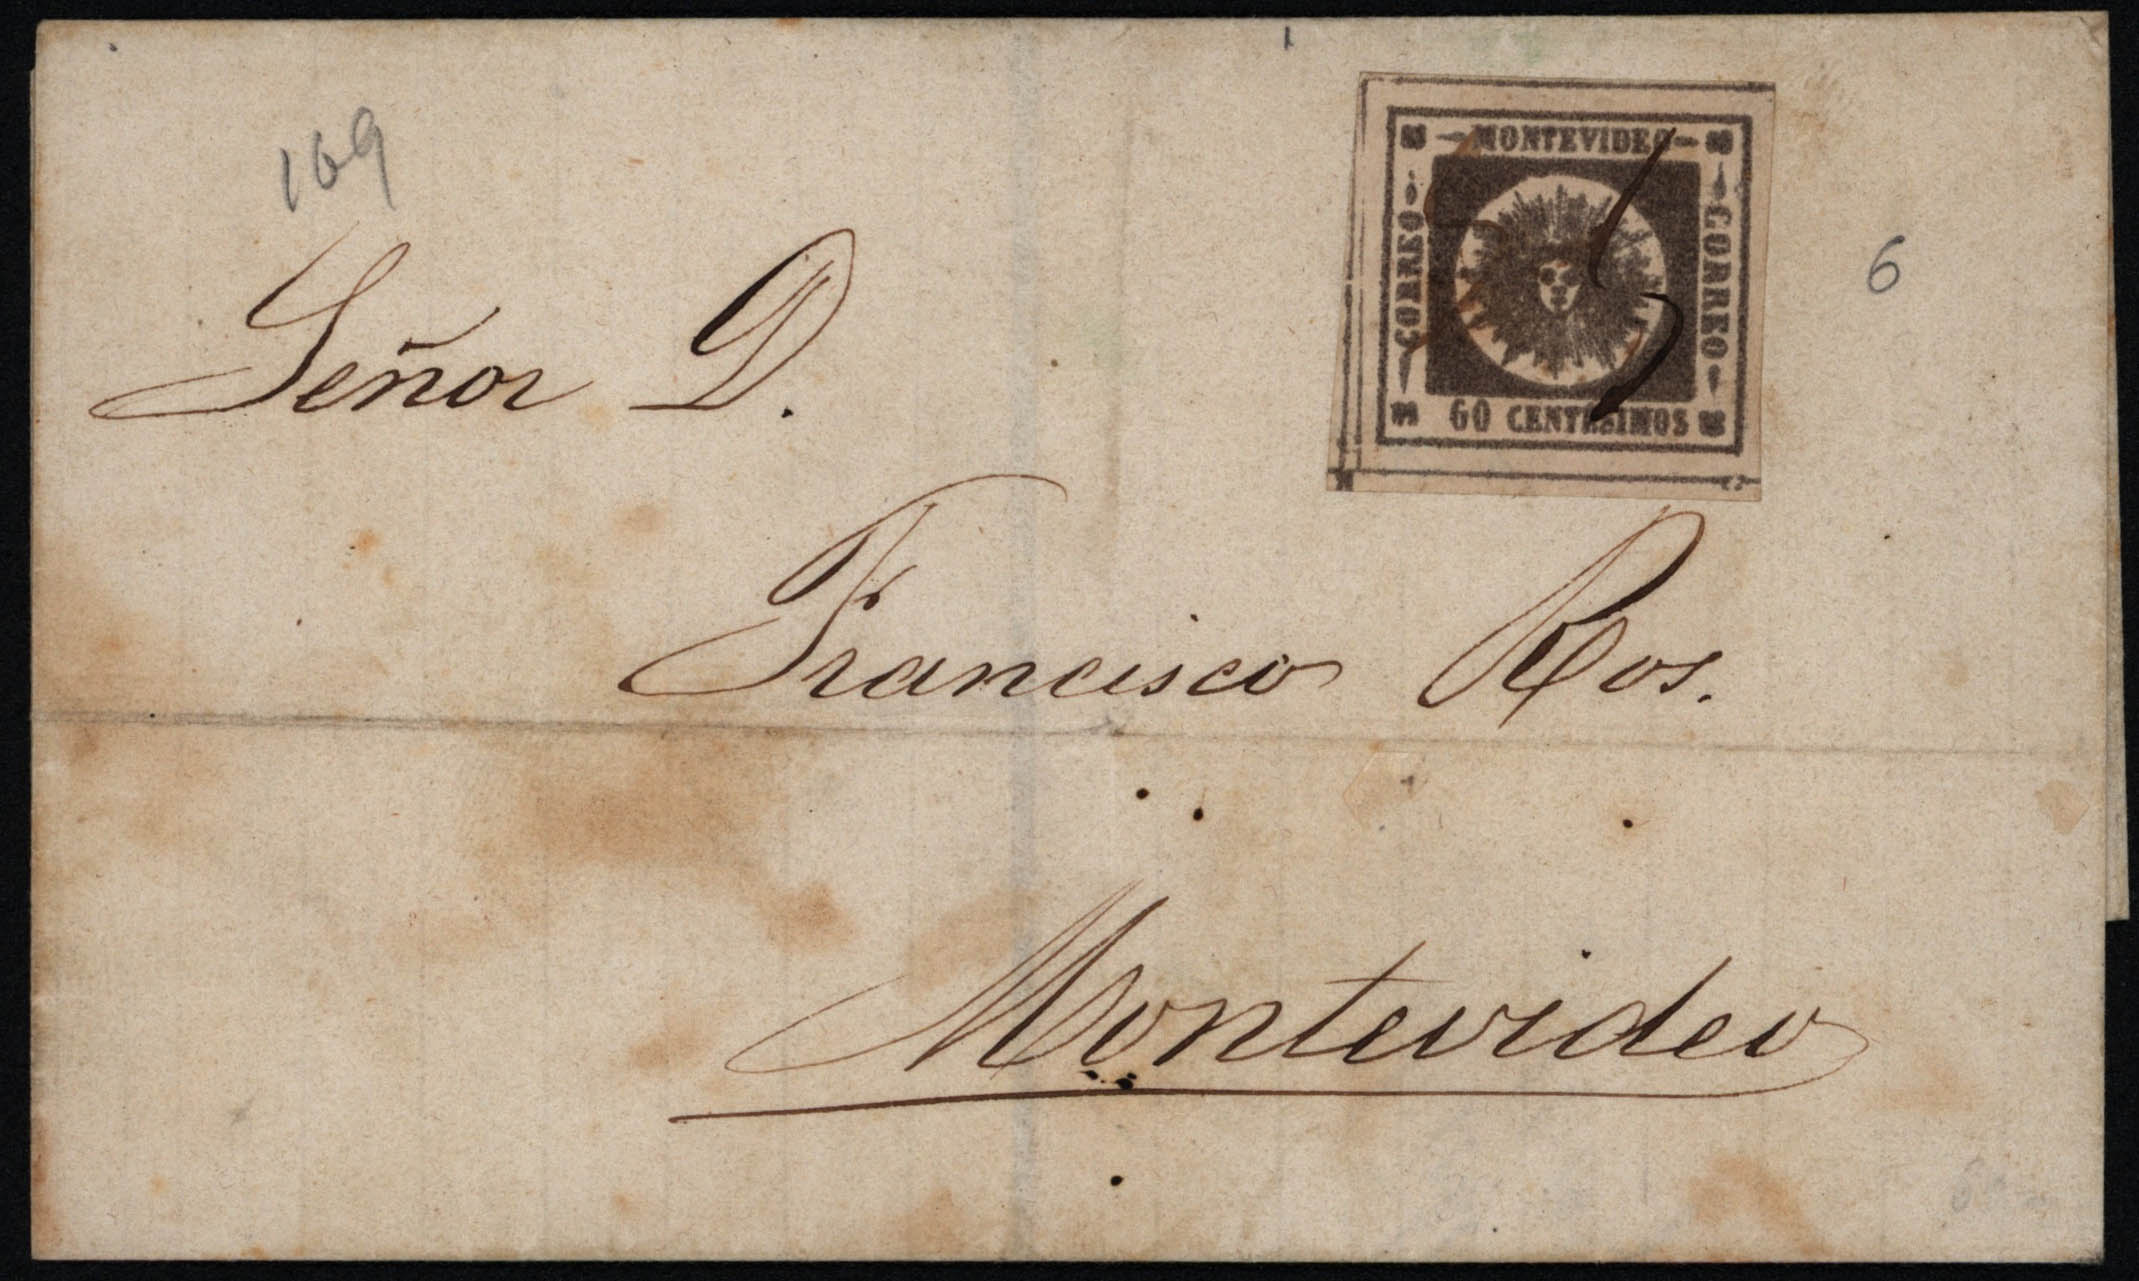 169
MONTEVIDEO
CORREO
CORREO
60 CENTESIMOS
6
Señor D.
Francisco Ros.
Montevideo